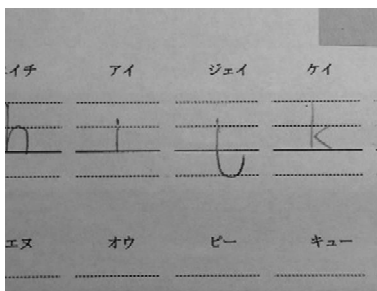 イチ アイ ジェイ ケイ
h i j k
エヌ オウ ピー キュー